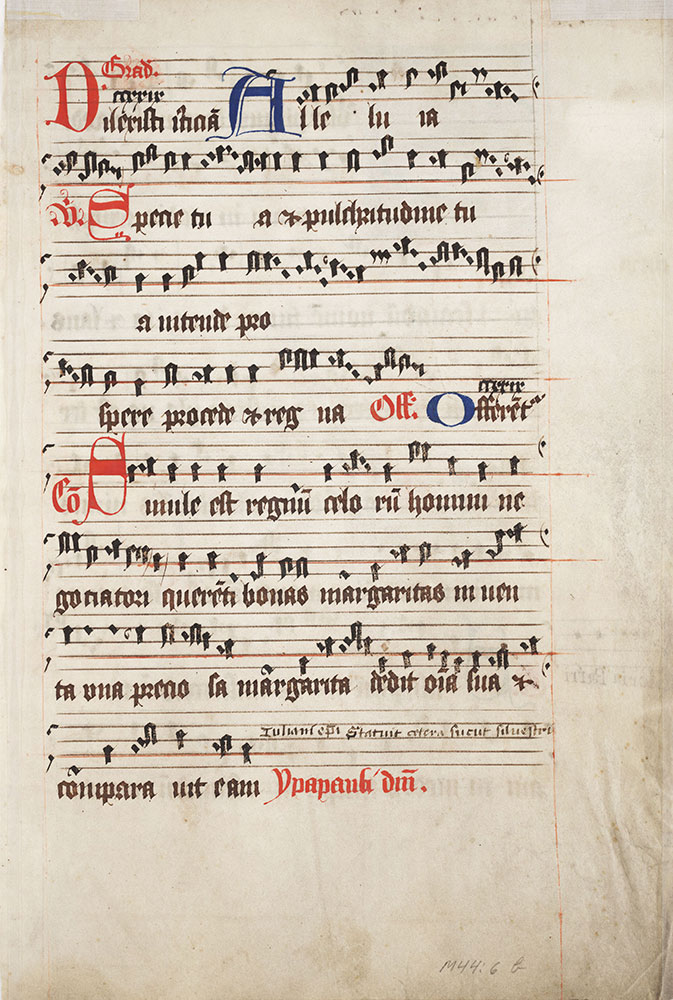 Grad.
ccxxix
Dilexisti iusticiā Alle lu ia
V. Specie tu a & pulchritudine tu
a intende pro
spere procede & reg na Off. Offerēt
ccxxix
Cō Simile est regnū celo rū homini ne
gociatori querēti bonas margaritas in uen
ta una precio sa mārgarita dedit oīa sua &
Iuliani epi Statuit cetera sicut silvestri
cōmpara uit eam Ypapanti dm̄.
M44:6